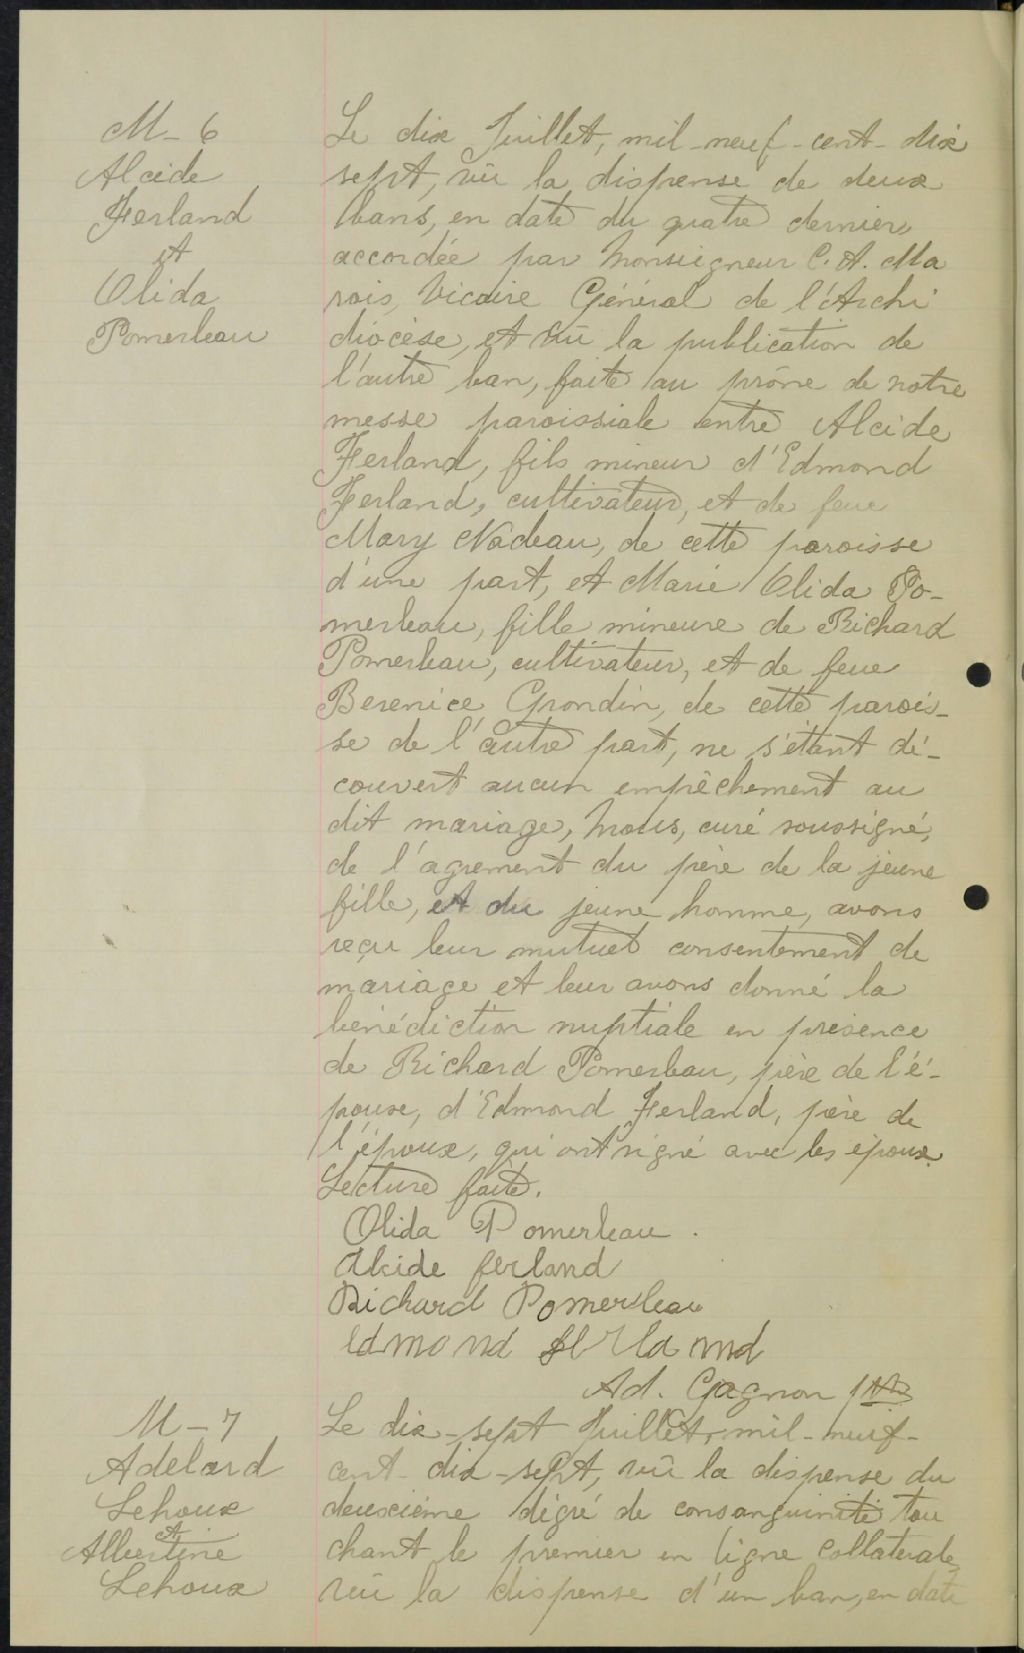 M-6
Alcide
Ferland
et
Olida
Pomerleau
Le dix Juillet, mil-neuf-cent-dix
sept, vû la dispense de deux
bans, en date du quatre dernier,
accordée par Monseigneur C. A. Ma
rois, Vicaire Général de l'Archi
diocèse, et vû la publication de
l'autre ban, faite au prône de notre
messe paroissiale entre Alcide
Ferland, fils mineur d'Edmond
Ferland, cultivateur, et de feue
Mary Nadeau, de cette paroisse
d'une part, et Marie Olida Po-
merleau, fille mineure de Richard
Pomerleau, cultivateur, et de feue
Berenice Grondin, de cette parois-
se de l'autre part, ne s'étant dé-
couvert aucun empêchement au
dit mariage, Nous, curé soussigné,
de l'agrement du père de la jeune
fille, et du jeune homme, avons
reçu leur mutuel consentement de
mariage et leur avons donné la
bénédiction nuptiale en présence
de Richard Pomerleau, père de l'é-
pouse, d'Edmond Ferland, père de
l'époux, qui ont signé avec les époux.
Lecture faite.
Olida Pomerleau.
Alcide ferland
Richard Pomerleau
Edmond ferland
Ad. Gagnon ptre
M-7
Adelard
Lehoux
et
Albertine
Lehoux
Le dix-sept Juillet, mil-neuf-
cent-dix-sept, vû la dispense du
deuxième dégré de consanguinité tou
chant le premier en ligne collaterale,
vû la dispense d'un ban, en date